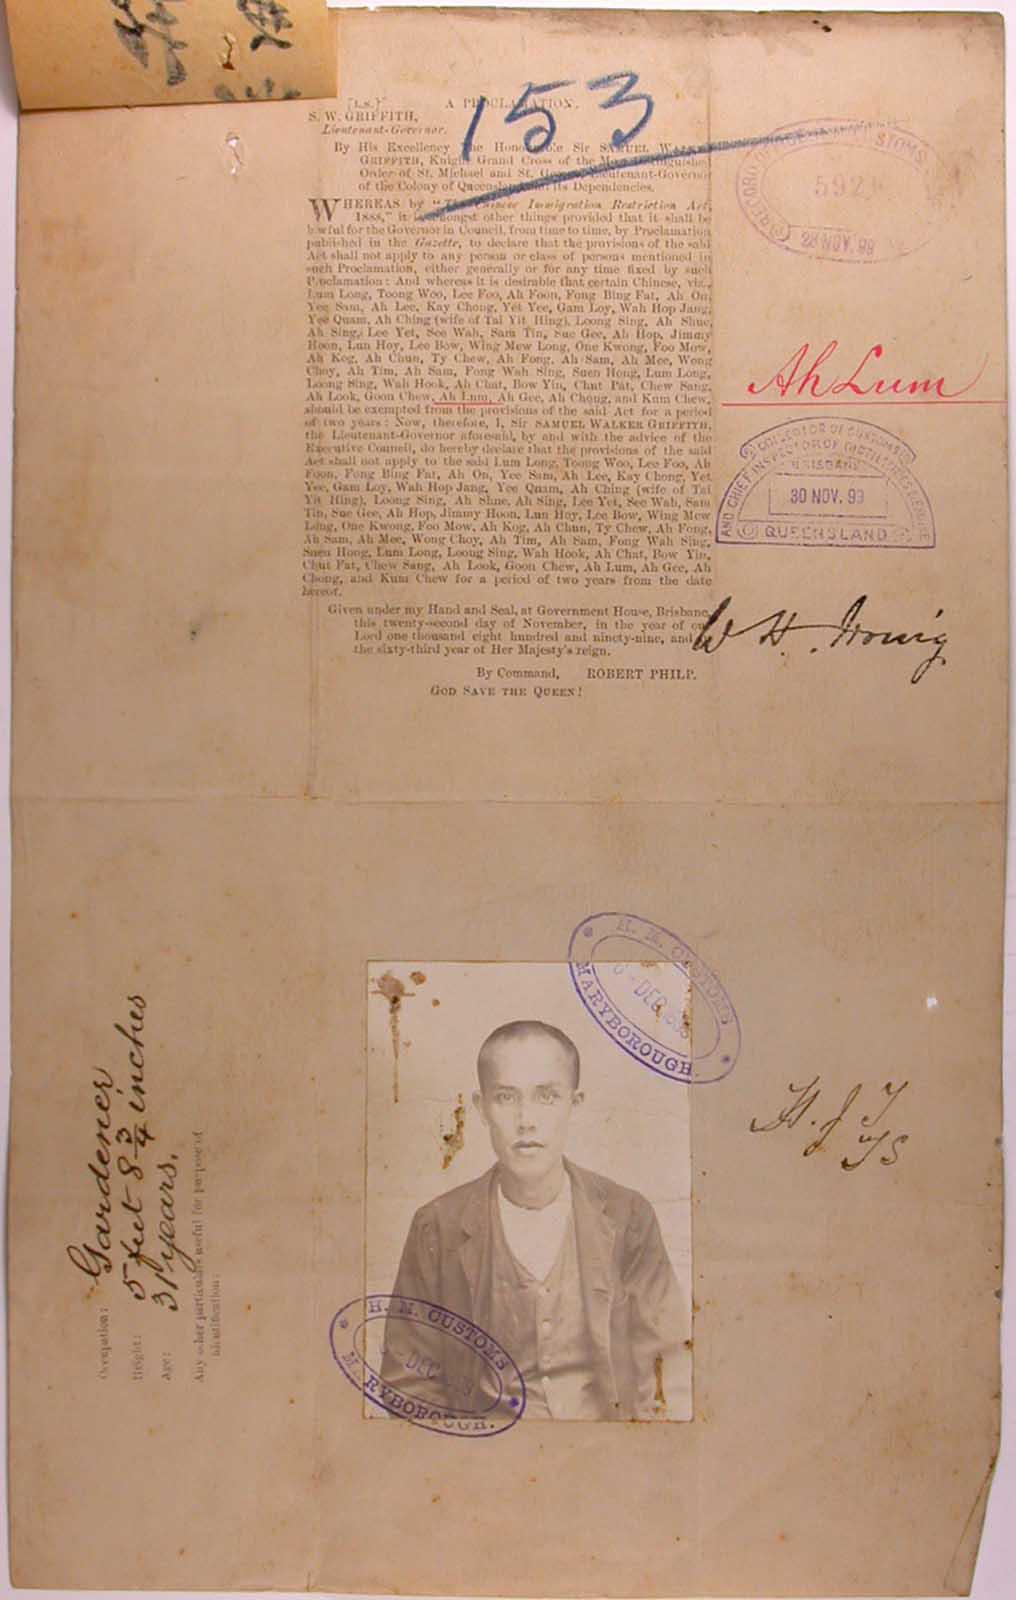 153
[L.S.] A PROCLAMATION.
S. W. GRIFFITH,
Lieutenant-Governor.
By His Excellency the Honourable Sir SAMUEL WALKER
GRIFFITH, Knight Grand Cross of the Most Distinguished
Order of St. Michael and St. George, Lieutenant-Governor
of the Colony of Queensland and its Dependencies.
WHEREAS by "The Chinese Immigration Restriction Act,
1888," it is amongst other things provided that it shall be
lawful for the Governor in Council, from time to time, by Proclamation
published in the Gazette, to declare that the provisions of the said
Act shall not apply to any person or class of persons mentioned in
such Proclamation, either generally or for any time fixed by such
Proclamation: And whereas it is desirable that certain Chinese, viz.,
Lum Long, Toong Woo, Lee Foo, Ah Foon, Fong Bing Fat, Ah On,
Yee Sam, Ah Lee, Kay Chong, Yet Yee, Gam Loy, Wah Hop Jang,
Yee Quam, Ah Ching (wife of Tai Yit Hing), Loong Sing, Ah Shue,
Ah Sing, Lee Yet, See Wah, Sam Tin, Sue Gee, Ah Hop, Jimmy
Hoon, Lun Hoy, Lee Bow, Wing Mew Long, One Kwong, Foo Mow,
Ah Kog, Ah Chun, Ty Chew, Ah Fong, Ah Sam, Ah Mee, Wong
Choy, Ah Tim, Ah Sam, Fong Wah Sing, Suen Hong, Lum Long,
Loong Sing, Wah Hook, Ah Chat, Bow Yin, Chut Fat, Chew Sang,
Ah Look, Goon Chew, Ah Lum, Ah Gee, Ah Chong, and Kum Chew,
should be exempted from the provisions of the said Act for a period
of two years: Now, therefore, I, Sir SAMUEL WALKER GRIFFITH,
the Lieutenant-Governor aforesaid, by and with the advice of the
Executive Council, do hereby declare that the provisions of the said
Act shall not apply to the said Lum Long, Toong Woo, Lee Foo, Ah
Foon, Fong Bing Fat, Ah On, Yee Sam, Ah Lee, Kay Chong, Yet
Yee, Gam Loy, Wah Hop Jang, Yee Quam, Ah Ching (wife of Tai
Yit Hing), Loong Sing, Ah Shue, Ah Sing, Lee Yet, See Wah, Sam
Tin, Sue Gee, Ah Hop, Jimmy Hoon, Lun Hoy, Lee Bow, Wing Mew
Long, One Kwong, Foo Mow, Ah Kog, Ah Chun, Ty Chew, Ah Fong,
Ah Sam, Ah Mee, Wong Choy, Ah Tim, Ah Sam, Fong Wah Sing,
Suen Hong, Lum Long, Loong Sing, Wah Hook, Ah Chat, Bow Yin,
Chut Fat, Chew Sang, Ah Look, Goon Chew, Ah Lum, Ah Gee, Ah
Chong, and Kum Chew for a period of two years from the date
hereof.
Given under my Hand and Seal, at Government House, Brisbane,
this twenty-second day of November, in the year of our
Lord one thousand eight hundred and ninety-nine, and
the sixty-third year of Her Majesty's reign.
By Command, ROBERT PHILP.
GOD SAVE THE QUEEN!
CUSTOMS
28 NOV. 99
Ah Lum
COLLECTOR OF CUSTOMS
AND CHIEF INSPECTOR OF DISTILLERIES
BRISBANE
30 NOV. 99
QUEENSLAND
W H.
Occupation: Gardener
Height: 5 feet 8 3/4 inches
Age: 31 years.
Any other particulars useful for purpose of
identification:
H. M. CUSTOMS
DEC
MARYBOROUGH.
H. M. CUSTOMS
DEC
MARYBOROUGH.